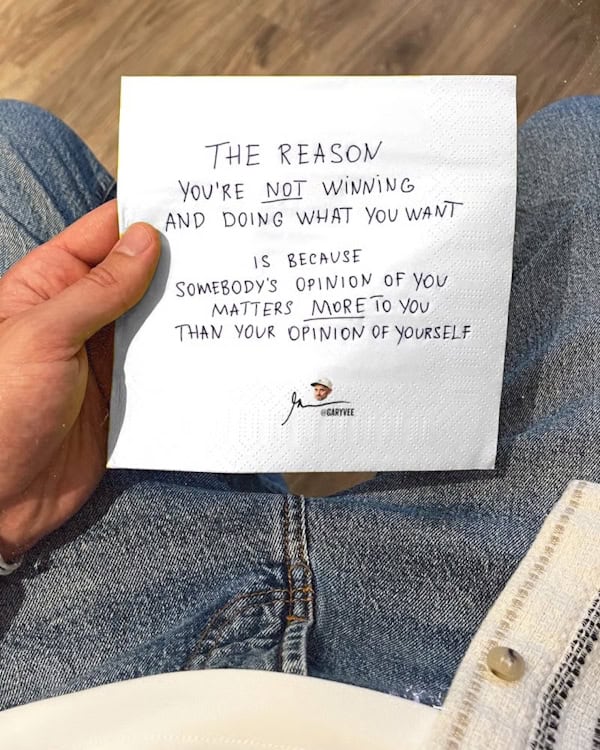 THE REASON
YOU'RE NOT WINNING
AND DOING WHAT YOU WANT
IS BECAUSE
SOMEBODY'S OPINION OF YOU
MATTERS MORE TO YOU
THAN YOUR OPINION OF YOURSELF
@GARYVEE